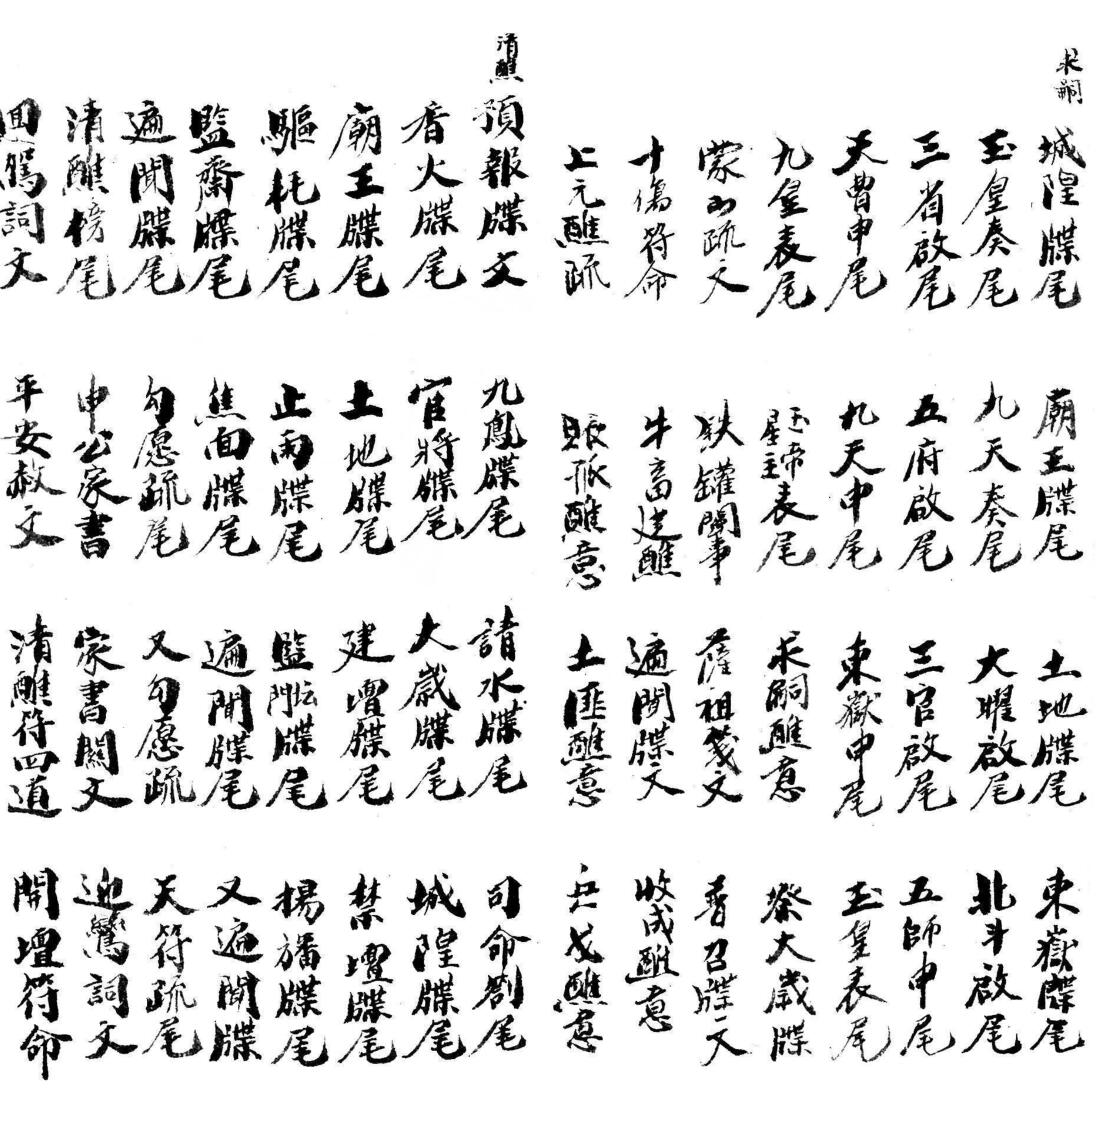 求嗣
城隍牒尾
廟王牒尾
土地牒尾
東嶽牒尾
玉皇奏尾
九天奏尾
大曜啟尾
北斗啟尾
三省啟尾
五府啟尾
三官啟尾
五師申尾
天曹申尾
九天申尾
東嶽申尾
玉皇表尾
九皇表尾
玉帝星主表尾
求嗣醮意
祭大歲牒
蒙山疏文
鉄罐關事
薩祖箋文
普召牒文
十傷符命
牛畜送醮
遍聞牒文
收成醮意
上元醮疏
賑孤醮意
土匪醮意
兵戈醮意
清醮
預報牒文
九鳳牒尾
請水牒尾
司命劄尾
香火牒尾
官將牒尾
大歲牒尾
城隍牒尾
廟王牒尾
土地牒尾
建壇牒尾
禁壇牒尾
驅耗牒尾
止雨牒尾
監坛門牒尾
揚旛牒尾
監齋牒尾
焦面牒尾
遍聞牒尾
又遍聞牒
遍聞牒尾
勾愿疏尾
又勾愿疏
天符疏尾
清醮榜尾
申公家書
家書關文
迎鸞詞文
迴鸞詞文
平安赦文
清醮符四道
開壇符命